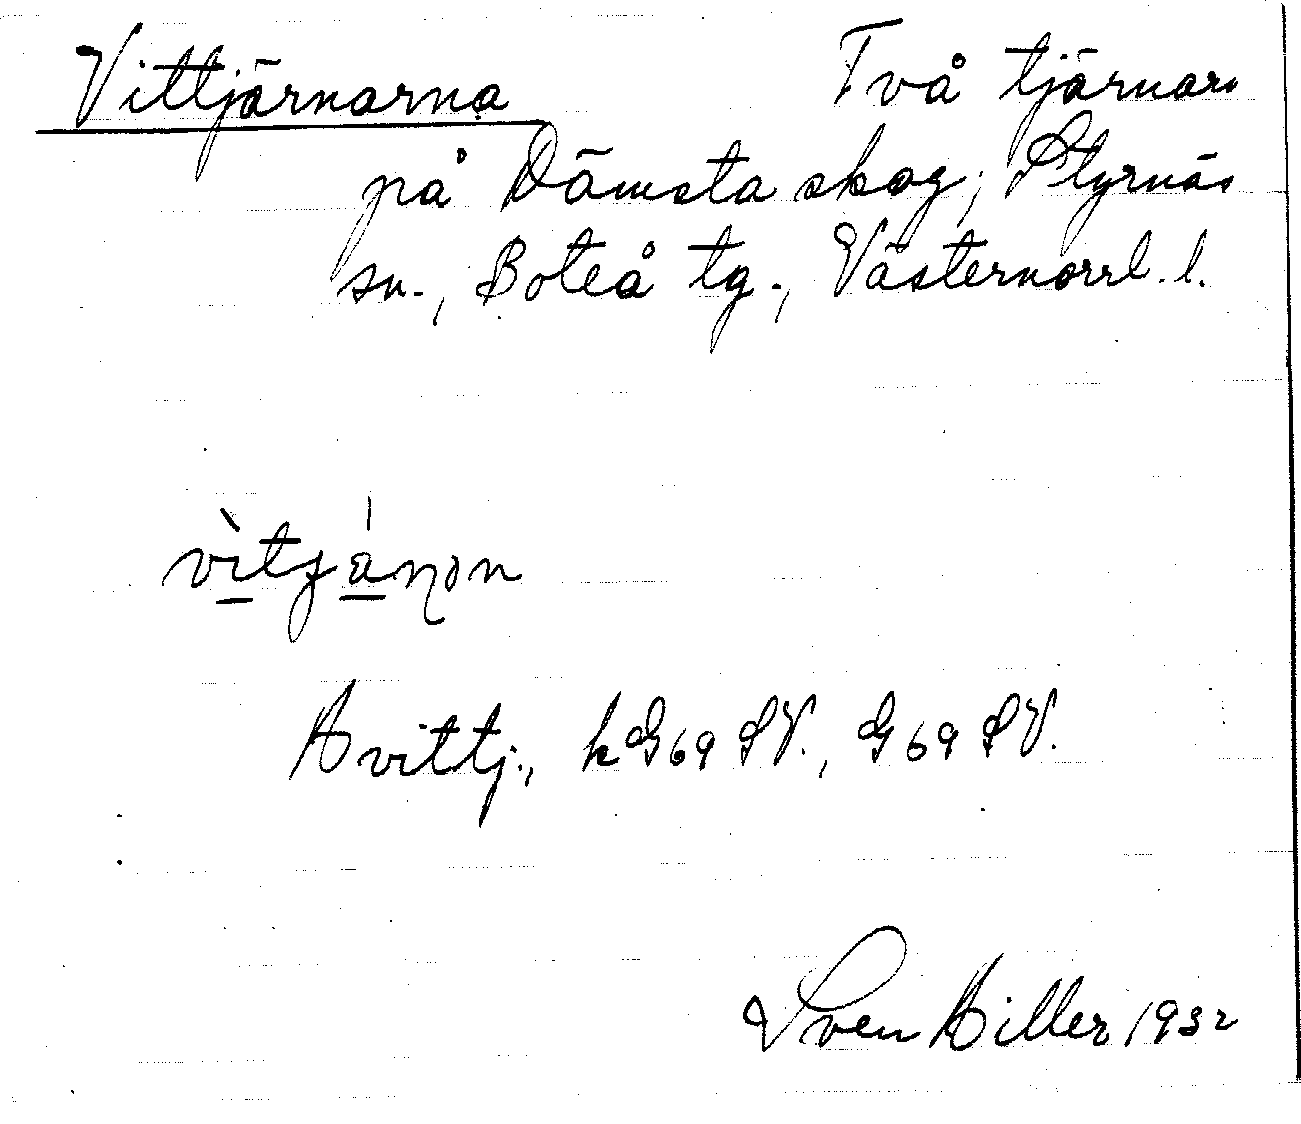 Vittjärnarna Två tjärnar
på Dämsta skog, Styrnäs
sn., Boteå tg., Västernorrl. l.
vìtjánọn
Hvittj., kG69SV., G69SV.
Sven Hiller 1932